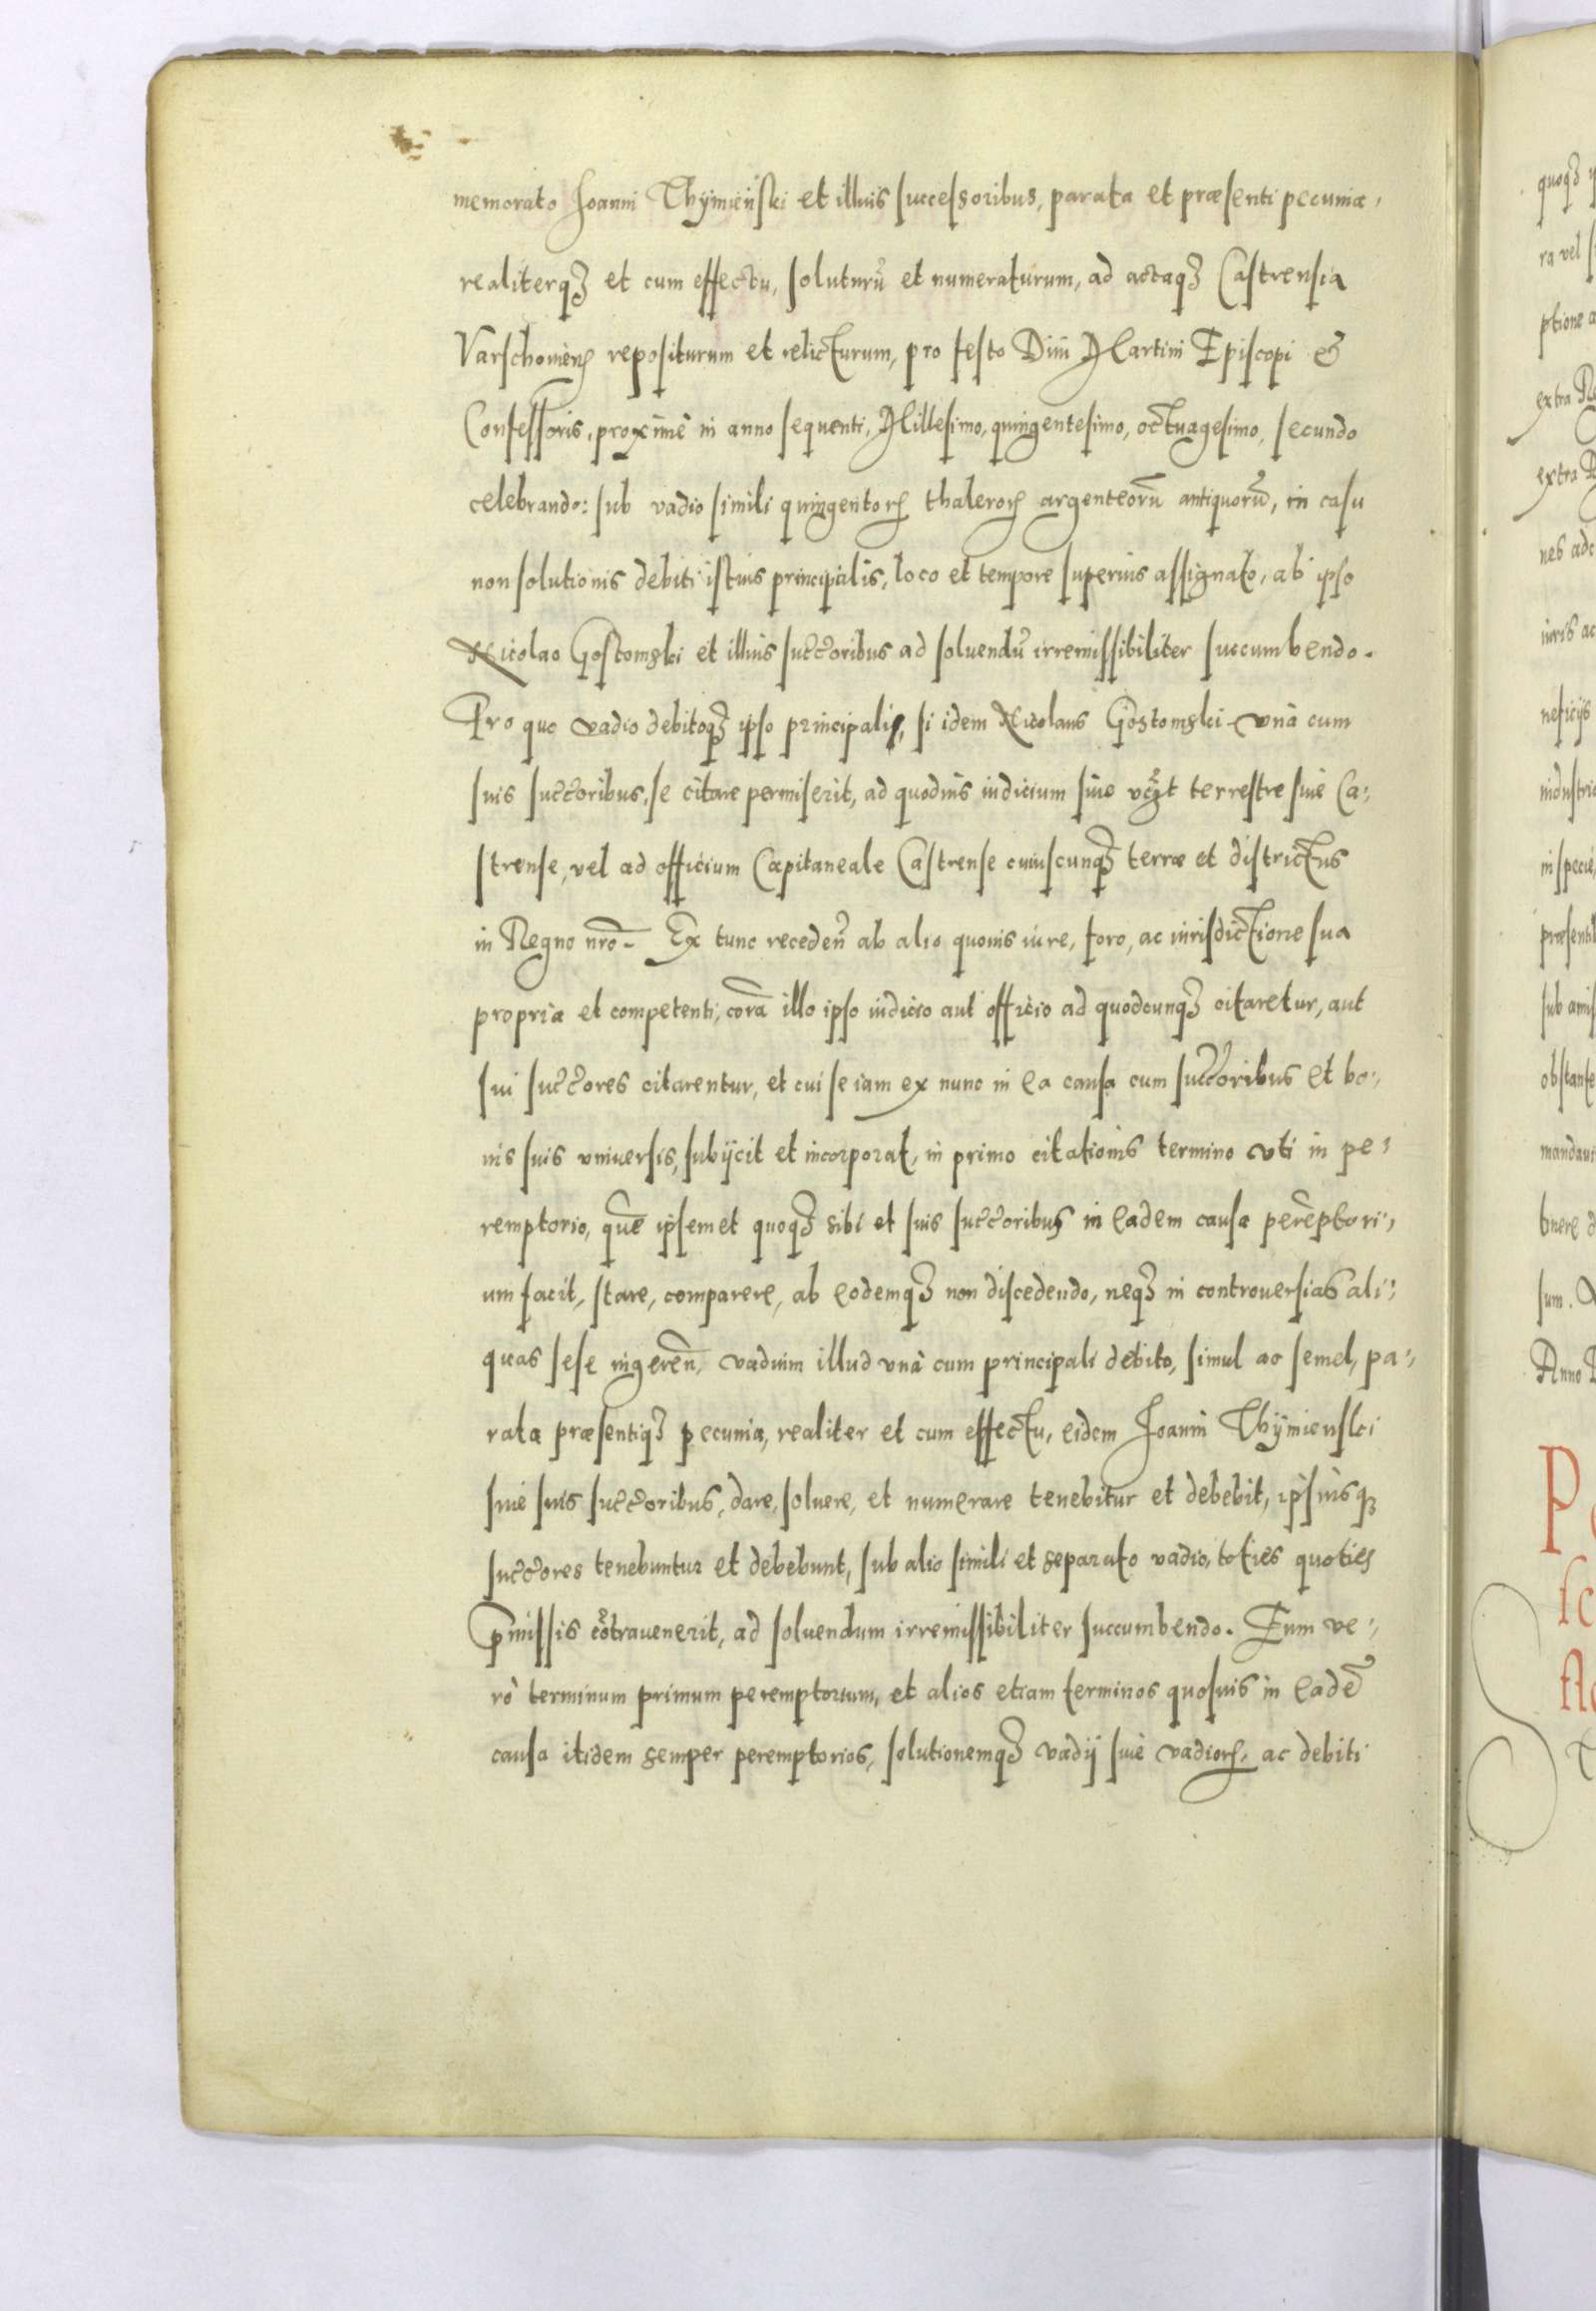 memorato Joanni Thÿmieński et illius successoribus, parata et præsenti pecunia,
realiterqꝫ et cum effectu, soluturũ et numeraturum, ad actaqꝫ Castrensia
Varschouieñ repositurum et relicturum, pro festo Diui Martini Episcopi &
Confessoris, proximè in anno sequenti, Millesimo, quingentesimo, octuagesimo, secundo
celebrando: sub vadio simili quingentoꝝ thaleroꝝ argenteorũ antiquorũ, in casu
non solutionis debiti istius principalis, loco et tempore superius assignato, ab ipso
Nicolao Gostomski et illius succ̃oribus ad soluendũ irremissibiliter succumbendo.
Pro quo vadio debitoqꝫ ipso principali, si idem Nicolaus Gostomski vnà cum
suis succ̃oribus, se citare permiserit, ad quoduis iudicium siue terrestre siue Ca:,
strense, vel ad officium Capitaneale Castrense cuiuscunqꝫ terræ et districtus
in Regno nr̃o. Ex tunc recedeñ ab alio quouis iure, foro, ac iurisdictione sua
propria et competenti, corã illo ipso iudicio aut officio ad quodcunqꝫ citaretur, aut
sui succ̃ores citarentur, et cui se iam ex nunc in ea causa cum succ̃oribus et bo:,
nis suis vniuersis, subijcit et incorporat, in primo citationis termino vti in pe:,
remptorio, quẽ ipsemet quoqꝫ sibi et suis succ̃oribus in eadem causa perẽptori:,
um facit, stare, comparere, ab eodemqꝫ non discedendo, neqꝫ in controuersias ali:,
quas sese ingereñ, vadium illud vnà cum principali debito, simul ac semel, pa:,
rata præsentiqꝫ pecunia, realiter et cum effectu, eidem Joanni Thÿmienski
siue suis succ̃oribus, dare, soluere, et numerare tenebitur et debebit, ipsiusqꝫ
succ̃ores tenebuntur et debebunt, sub alio simili et separato vadio, toties quoties
p̃missis cõtrauenerit, ad soluendum irremissibiliter succumbendo. Eum ve:,
rò terminum primum peremptorium, et alios etiam terminos quosuis in eadẽ
causa itidem semper peremptorios, solutionemqꝫ vadij siue vadioꝝ, ac debiti
quoqꝫ
ra vel
ptione
extra
extra
iuris ac
neficijs
industria
in specie,
sum.
Anno